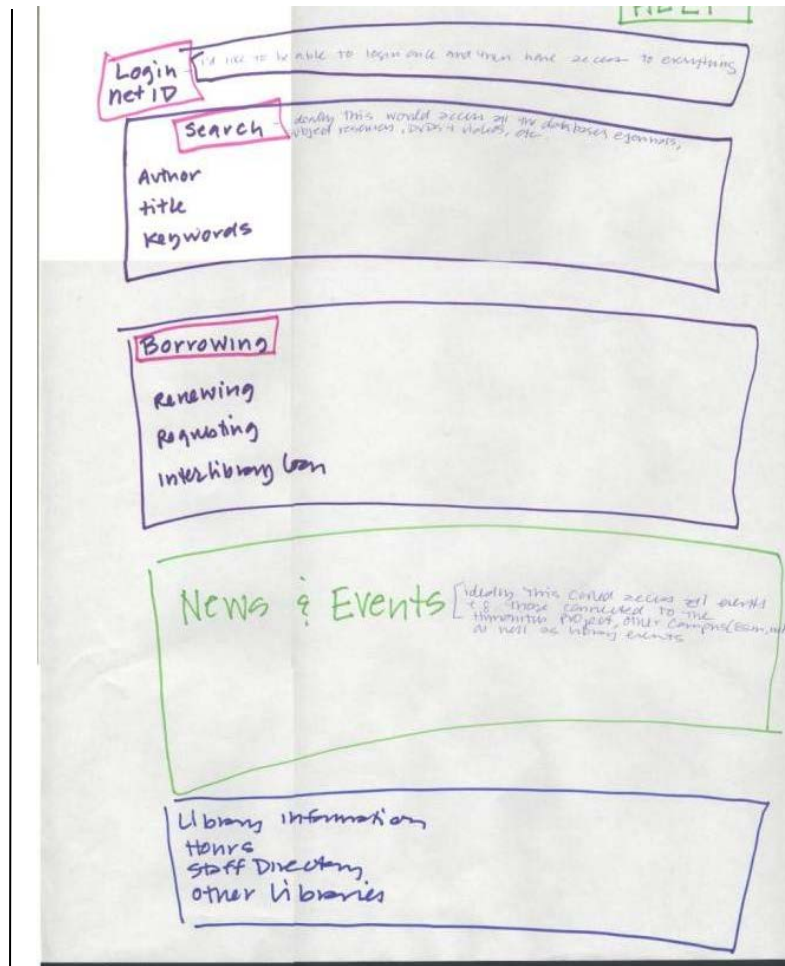 HELP
Login
net ID
I'd like to be able to login once and then have access to everything
Search
ideally this would access all the databases, ejournals,
subject resources, DVDs & videos, etc.
Author
title
Keywords
Borrowing
Renewing
Requesting
Interlibrary loan
News & Events
ideally this could access all events
those connected to the
Humanities Project, other campus
as well as library events
Library information
Hours
Staff Directory
Other Libraries